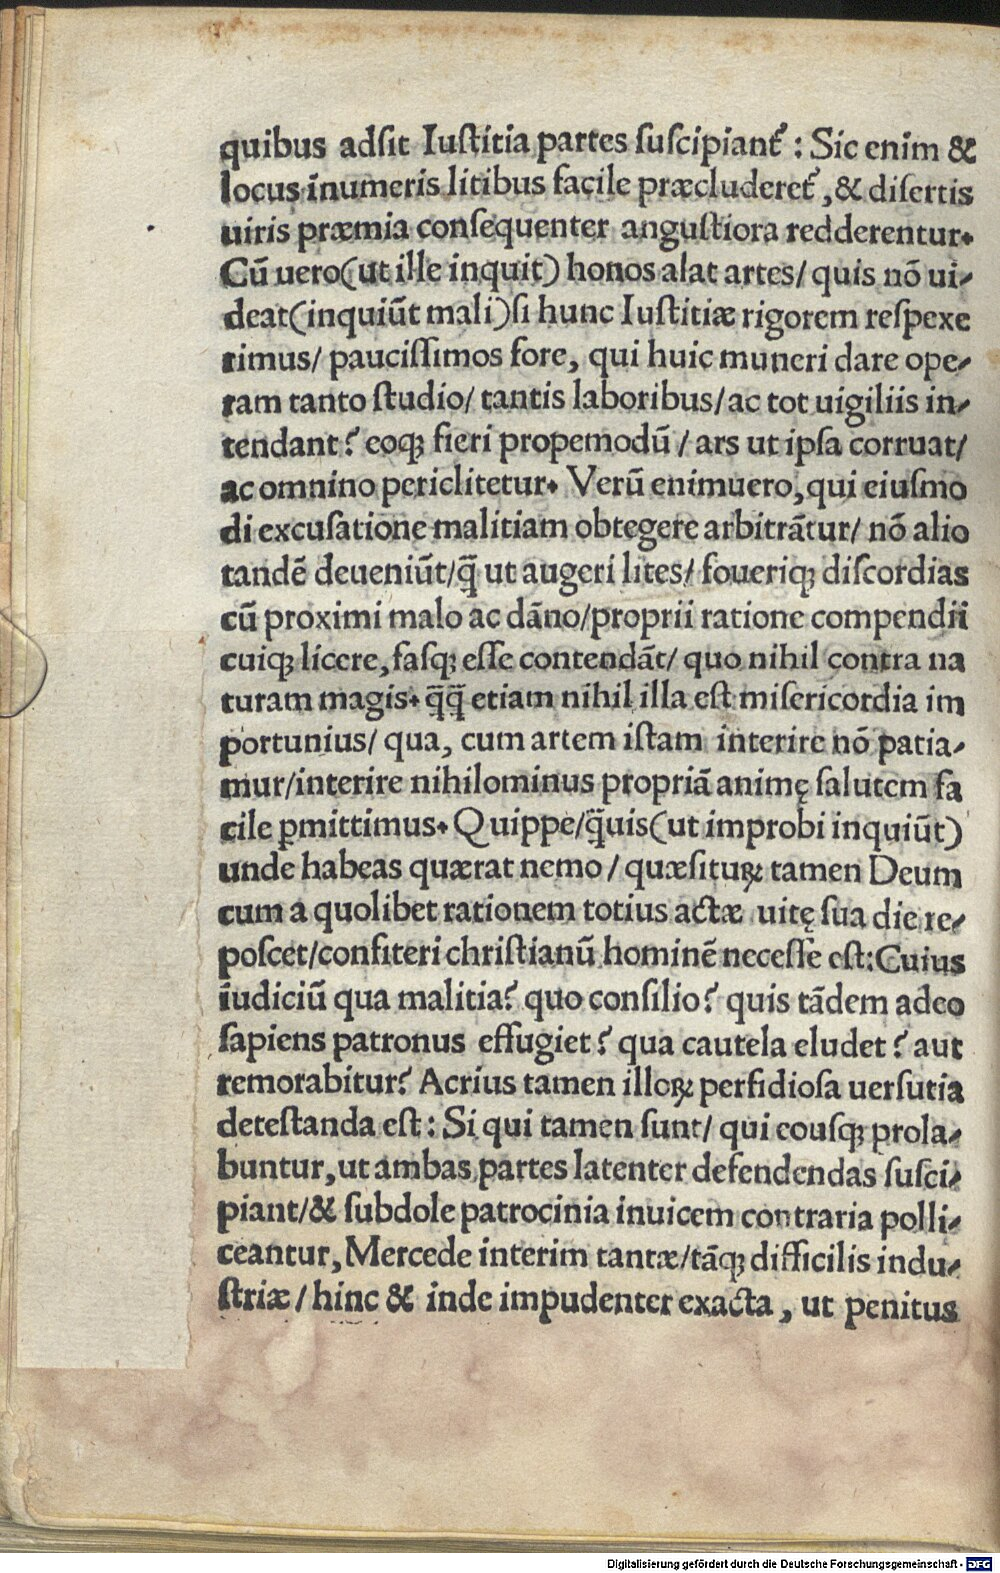 quibus adsit Iuſtitia partes ſuſcipiant᷑ : Sic enim &
locus īnumeris litibus facile præcluderet᷑, & diſertis
uiris præmia conſequenter anguſtiora redderentur.
Cū uero(ut ille inquit) honos alat artes/ quis nō ui-
deat(inquiūt mali)ſi hunc Iuſtitiæ rigorem reſpexe
rimus/ pauciſſimos fore, qui huic muneri dare ope-
ram tanto ſtudio/ tantis laboribus/ ac tot uigiliis in-
tendant? eoqꝫ fieri propemodū / ars ut ipſa corruat/
ac omnino periclitetur. Verū enimuero, qui eiuſmo
di excuſatione malitiam obtegere arbitrātur/ nō alio
tandē deueniūt/q̄ ut augeri lites/ foueriqꝫ diſcordias
cū proximi malo ac dāno/proprii ratione compendii
cuiqꝫ licere, faſqꝫ eſſe contendāt/ quo nihil contra na
turam magis. q̄q̄ etiam nihil illa eſt miſericordia im
portunius/ qua, cum artem iſtam interire nō patia-
mur/interire nihilominus propriā animę ſalutem fa
cile ꝑmittimus. Quippe/q̄uis(ut improbi inquiūt)
unde habeas quærat nemo / quæſituꝝ tamen Deum
cum a quolibet rationem totius actæ uitę ſua die re-
poſcet/confiteri chriſtianū hominē neceſſe eſt: Cuius
iudiciū qua malitia? quo conſilio? quis tādem adeo
ſapiens patronus effugiet? qua cautela eludet? aut
remorabitur? Acrius tamen illoꝝ perfidioſa uerſutia
deteſtanda eſt: Si qui tamen ſunt/ qui eouſqꝫ prola-
buntur, ut ambas partes latenter defendendas ſuſci-
piant/& ſubdole patrocinia inuicem contraria polli-
ceantur, Mercede interim tantæ/tāqꝫ difficilis indu-
ſtriæ / hinc & inde impudenter exacta, ut penitus
Digitalisierung gefördert durch die Deutsche Forschungsgemeinschaft - DFG